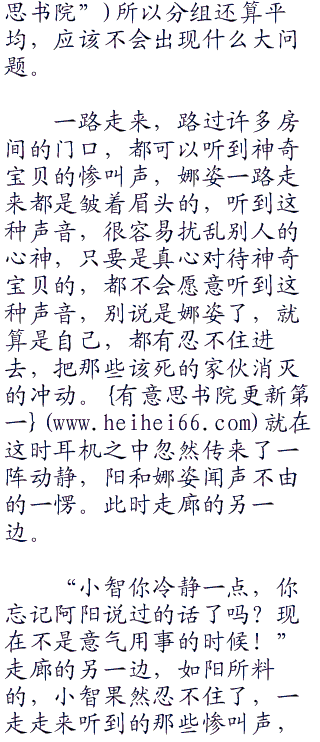 思书院”)所以分组还算平
均，应该不会出现什么大问
题。
一路走来，路过许多房
间的门口，都可以听到神奇
宝贝的惨叫声，娜姿一路走
来都是皱着眉头的，听到这
种声音，很容易扰乱别人的
心神，只要是真心对待神奇
宝贝的，都不会愿意听到这
种声音，别说是娜姿了，就
算是自己，都有忍不住进
去，把那些该死的家伙消灭
的冲动。{有意思书院更新第
一}(www.heihei66.com)就在
这时耳机之中忽然传来了一
阵动静，阳和娜姿闻声不由
的一愣。此时走廊的另一
边。
“小智你冷静一点，你
忘记阿阳说过的话了吗？现
在不是意气用事的时候！”
走廊的另一边，如阳所料
的，小智果然忍不住了，一
走走来听到的那些惨叫声，